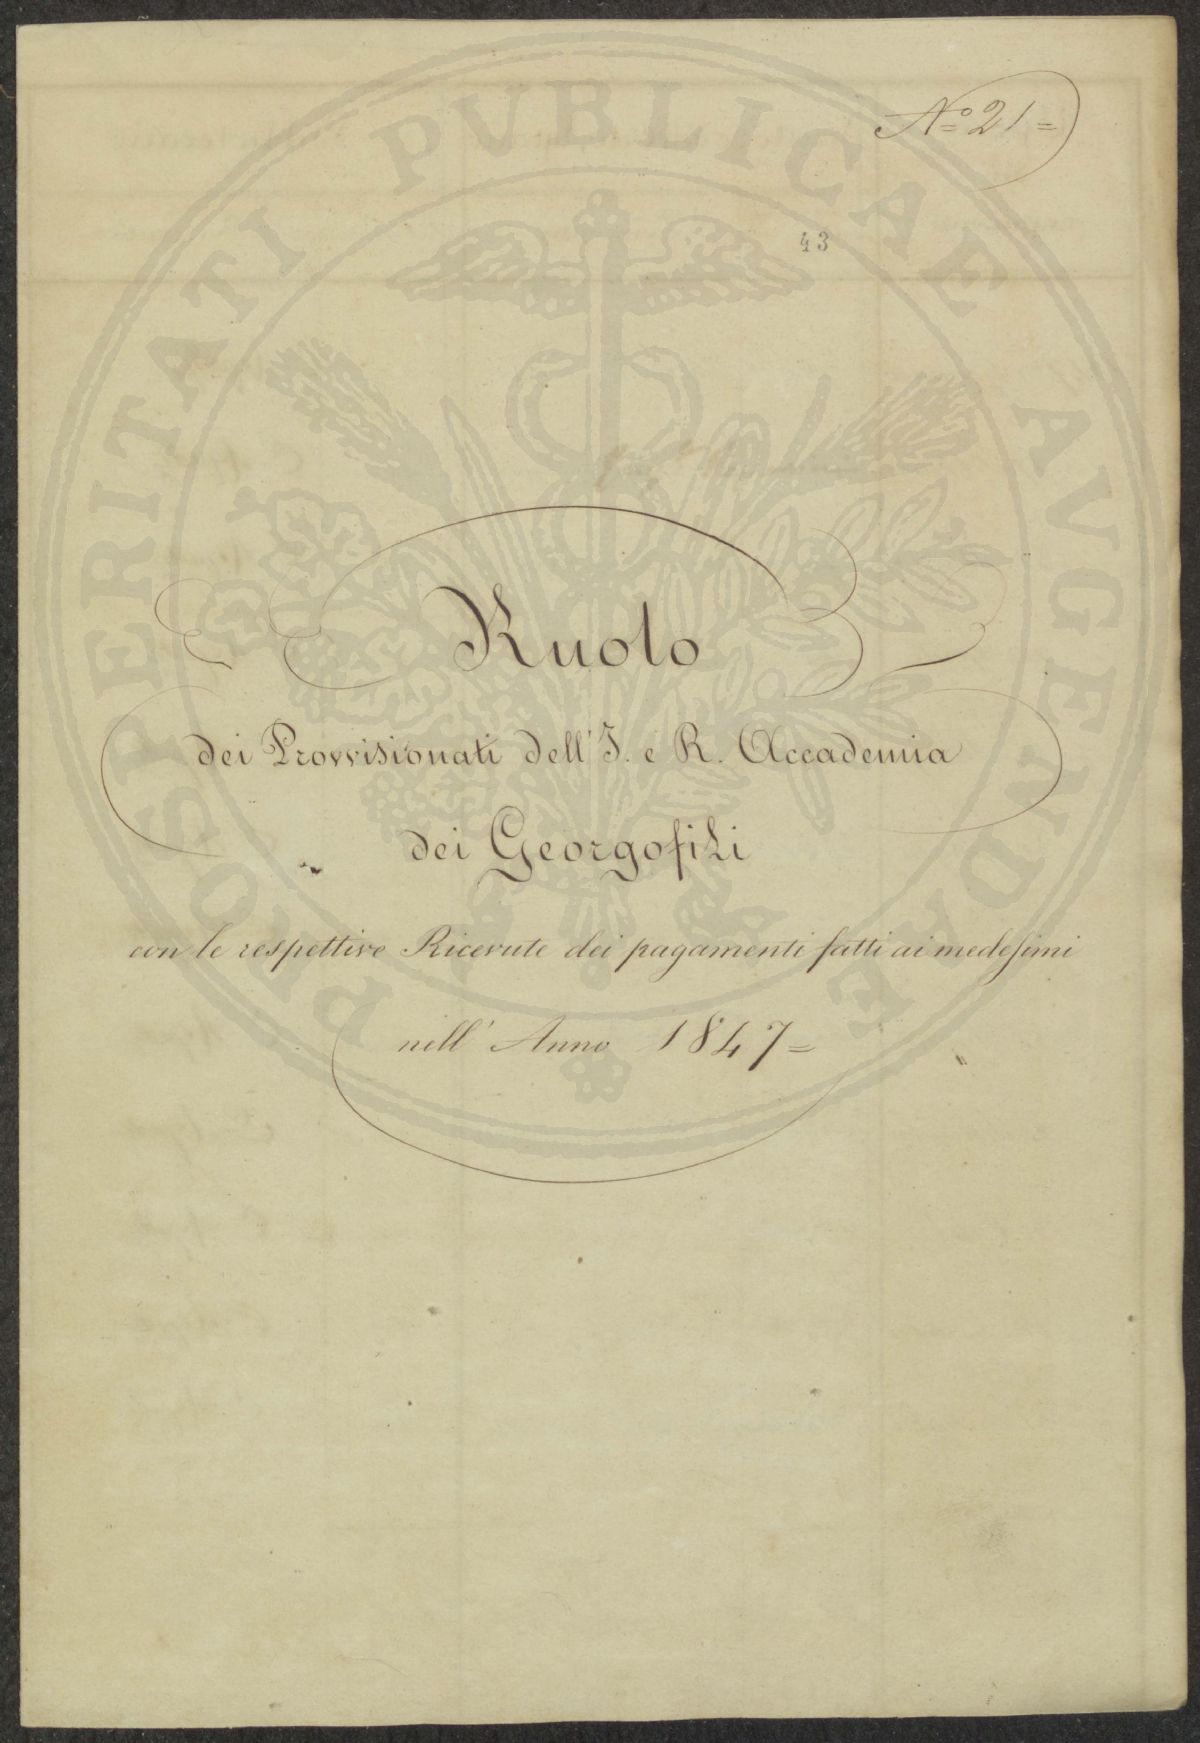 N.º 21 =
43
Ruolo
dei Provvisionati dell' I. e R. Accademia
dei Georgofili
con le respettive Ricevute dei pagamenti fatti ai medesimi
nell' Anno 1847 =
PROSPERITATI PVBLICAE AVGENDAE